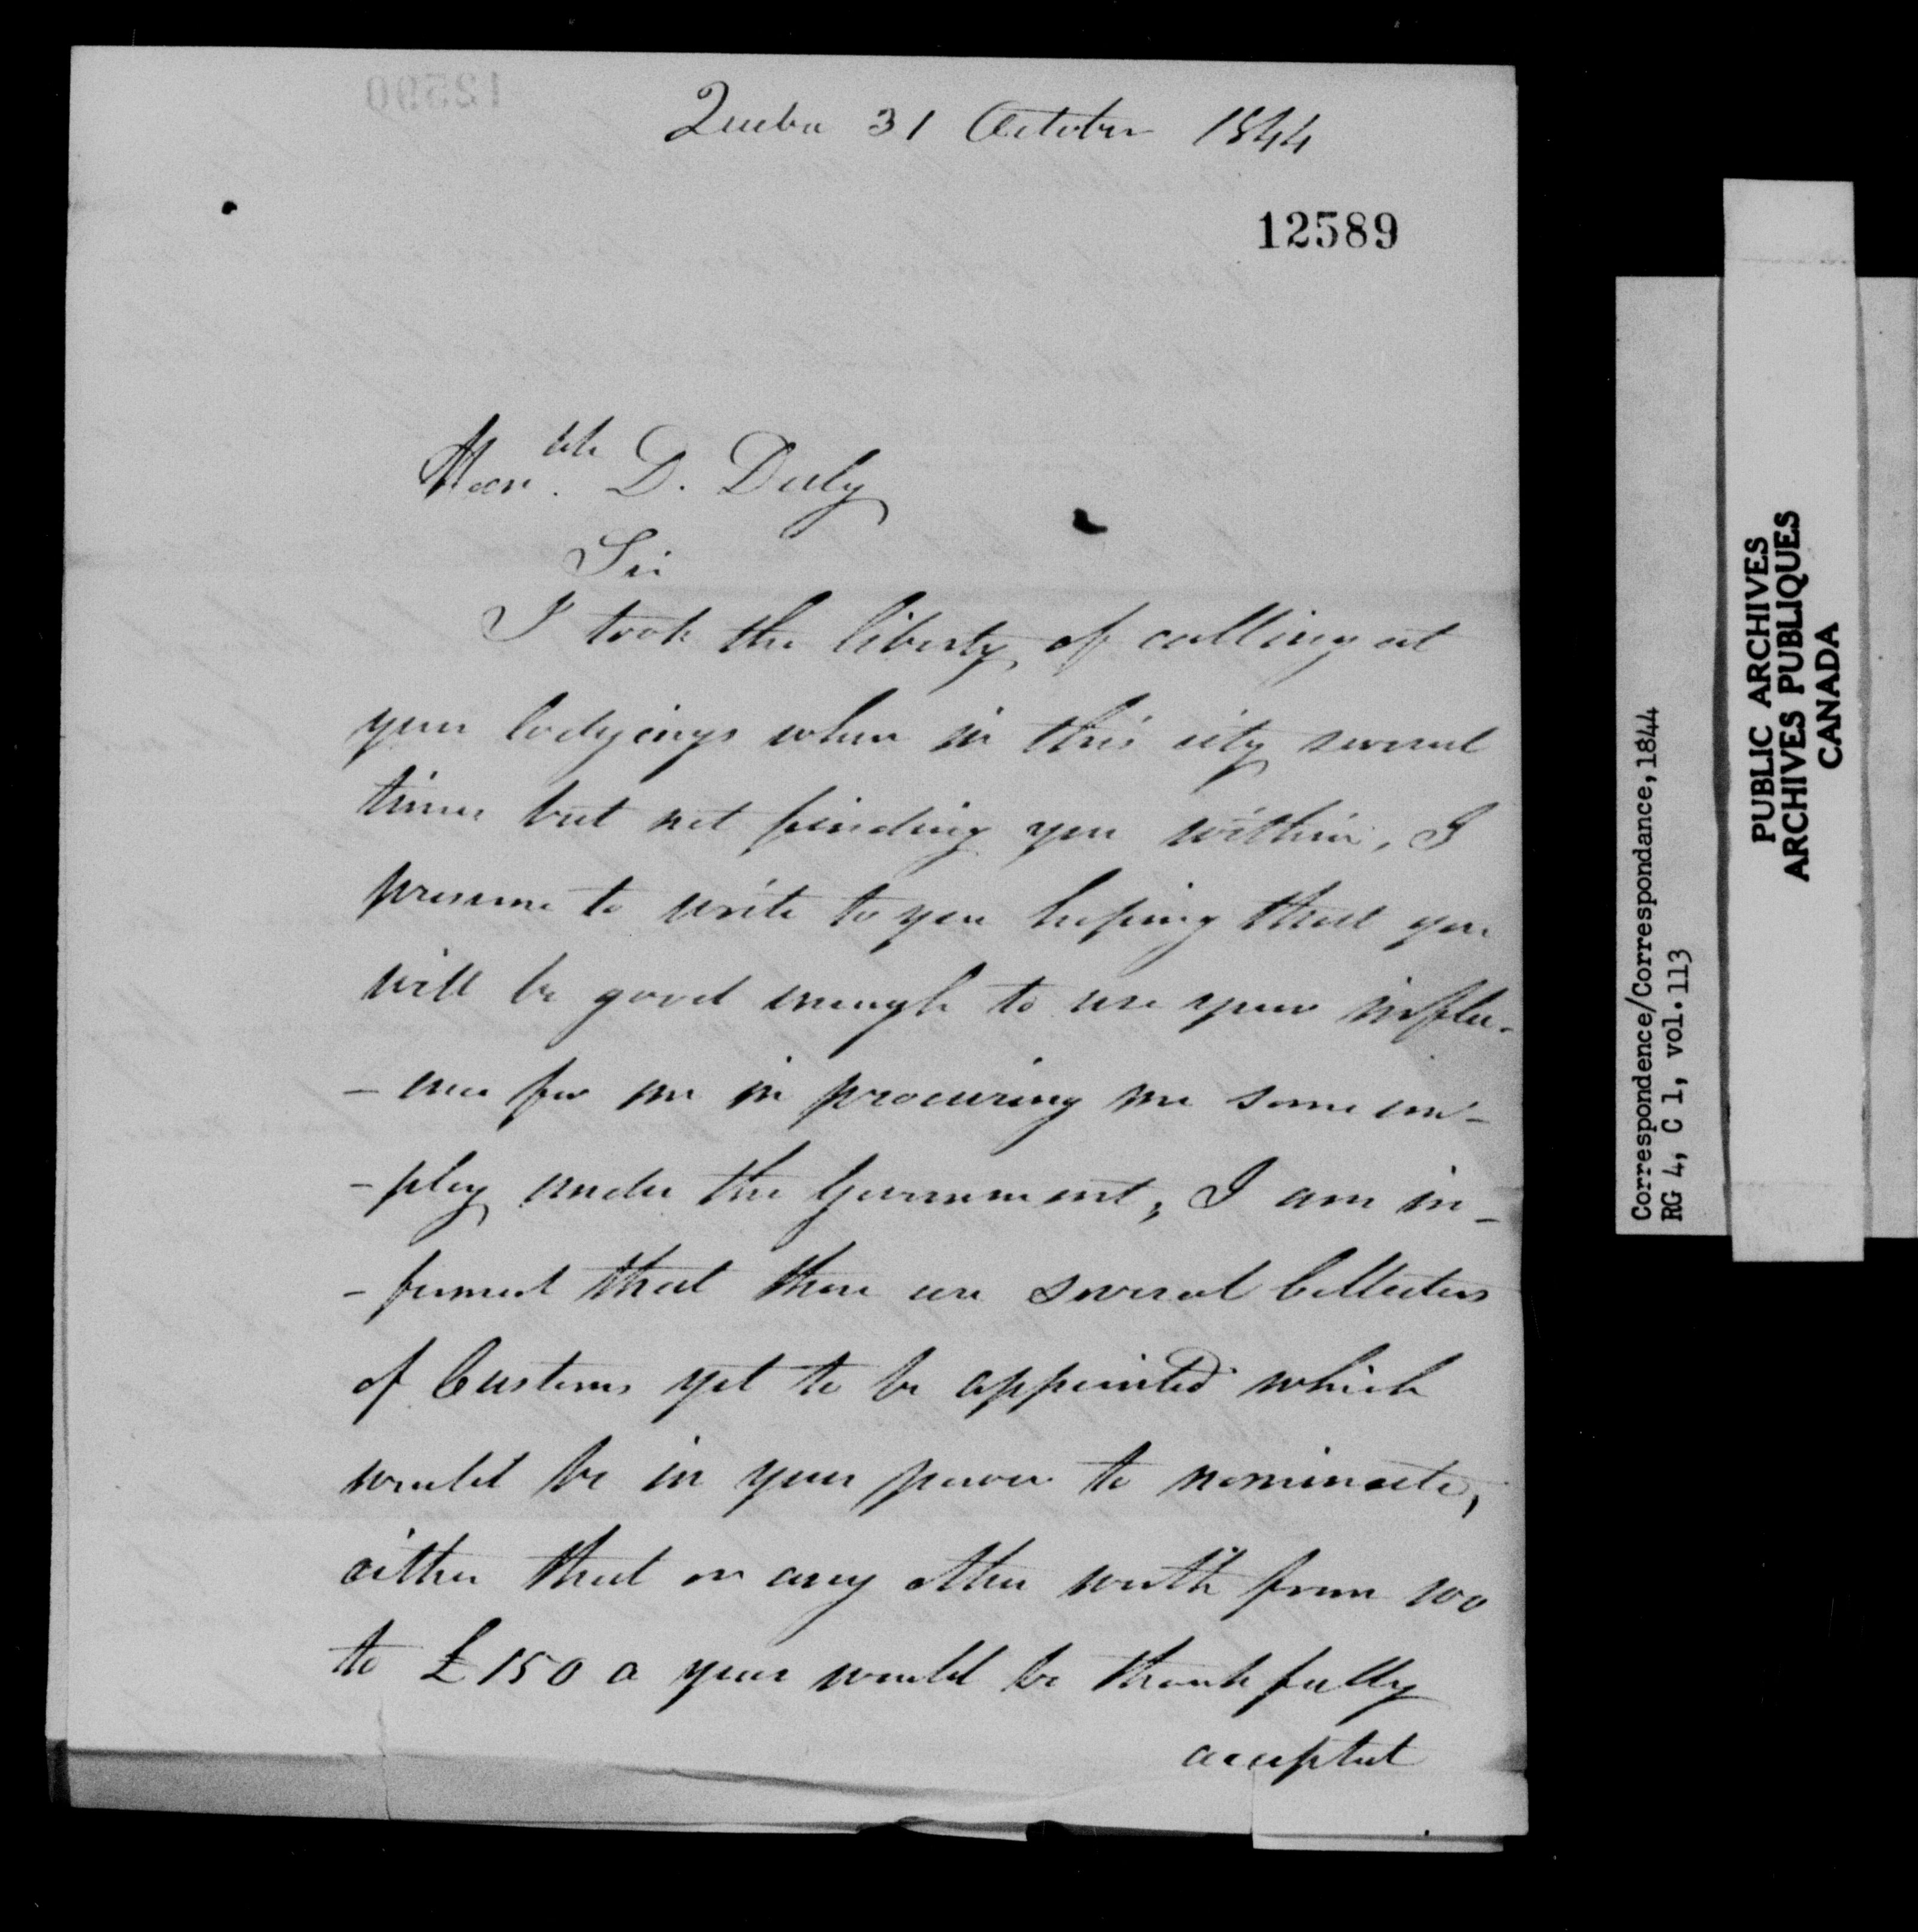 Quebec 31 October 1844
12589
Honble. D. Daly
Sir
I took the liberty of calling at
your lodgings when in this city several
times but not finding you within, I
presume to write to you hoping that you
will be good enough to use your influ-
- ence for me in procuring me some em-
- ploy under the Government, I am in-
- formed that there are several Collectors
of Customs yet to be appointed which
would be in your power to nominate,
either that or any other worth from 100
to £150 a year would be thankfully
accepted
Correspondence/Correspondance, 1844
RG 4, C 1, vol. 113
PUBLIC ARCHIVES
ARCHIVES PUBLIQUES
CANADA
12590